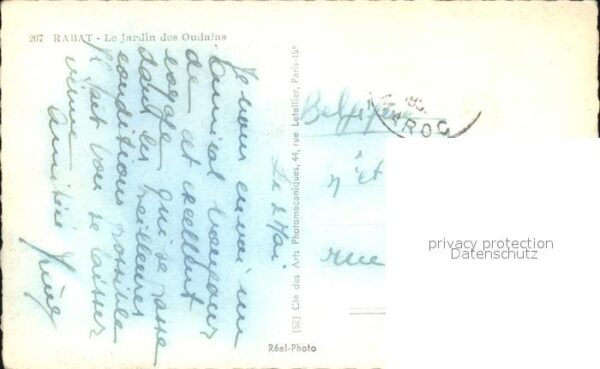 207 RABAT - Le Jardin des Oudaïas
Le 2 Mai
Je vous envoi un
amical bonjour
de cet excellent
voyage qui se passe
dans les meilleures
conditions possible
Il fait bon se laisser
vivre
Amitiés
(52) Cie des Arts Photomécaniques, 44, rue Letellier, Paris-15e
Réel-Photo
Belgique
MAROC
rue
privacy protection
Datenschutz